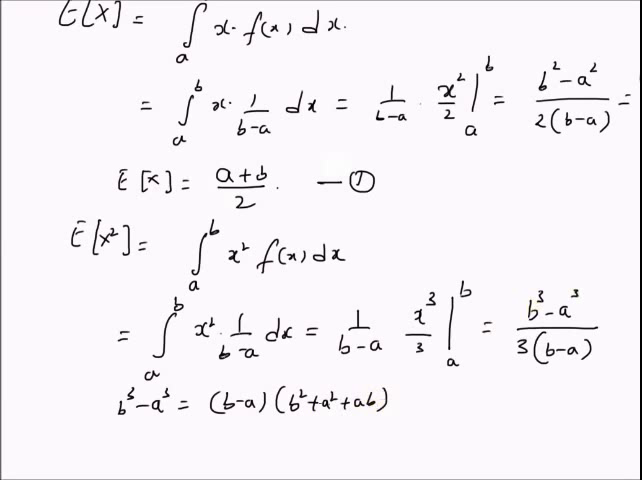 E[X] = ∫ₐ x. f(x) dx.
= ∫ₐᵇ x. 1/(b-a) dx = 1/(b-a) . x²/2 |ₐᵇ = (b²-a²)/(2(b-a)) =
E[x] = (a+b)/2. — ①
E[x²] = ∫ₐᵇ x² f(x) dx
= ∫ₐᵇ x². 1/(b-a) dx = 1/(b-a) x³/3 |ₐᵇ = (b³-a³)/(3(b-a))
b³-a³ = (b-a) (b²+a²+ab)